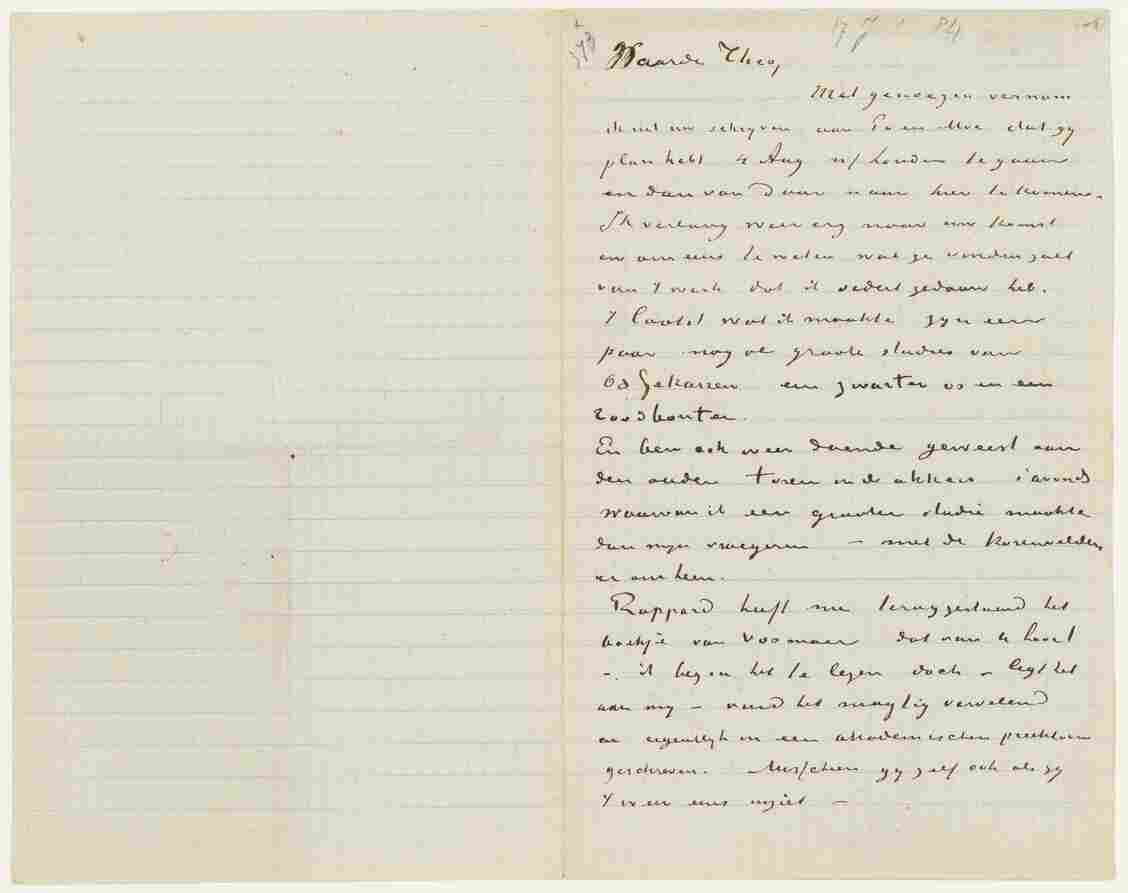 Waarde Theo,
Met genoegen vernam
ik uit uw schrijven aan Pa en Moe dat gij
plan hebt 4 Aug n/ Londen te gaan
en dan van daar naar hier te komen.
Ik verlang weer erg naar uw komst
en om eens te weten wat ge vinden zult
van 't werk dat ik sedert gedaan heb.
't laatst wat ik maakte zijn een
paar nog al groote studies van
ossekarren een zwarten os en een
roodbonten.
En ben ook weer doende geweest aan
den ouden toren in de akkers 's avonds
waarvan ik een grooter studie maakte
dan mijn vroegeren – met de korenvelden
er om heen.
Rappard heeft me teruggestuurd het
boekje van Vosmaer dat van U hoort
–. ik begon het te lezen doch – ligt het
aan mij – vond het magtig vervelend
en eigentlijk in een akademischen preektoon
geschreven. Misschien gij zelf ook als gij
't weer eens inziet –